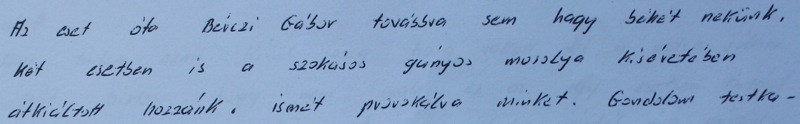 Az eset óta Bérczi Gábor továbbra sem hagy békét nekünk.
Két esetben is a szokásos gúnyos mosolya kíséretében
átkiáltott hozzánk, ismét provokálva minket. Gondolom testka-